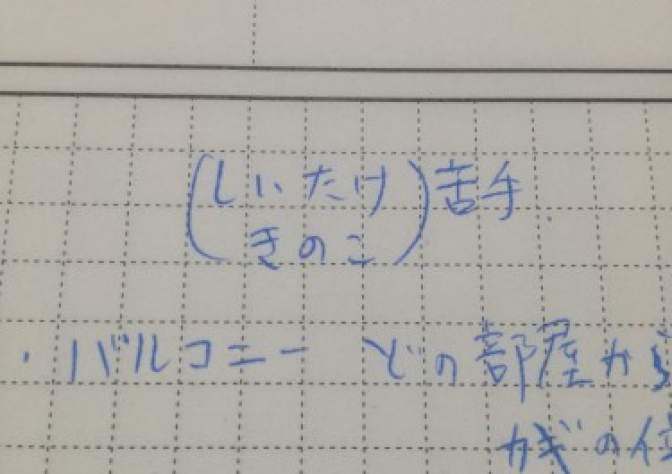 (しいたけ
きのこ) 苦手.
・バルコニー どの部屋から
カギの